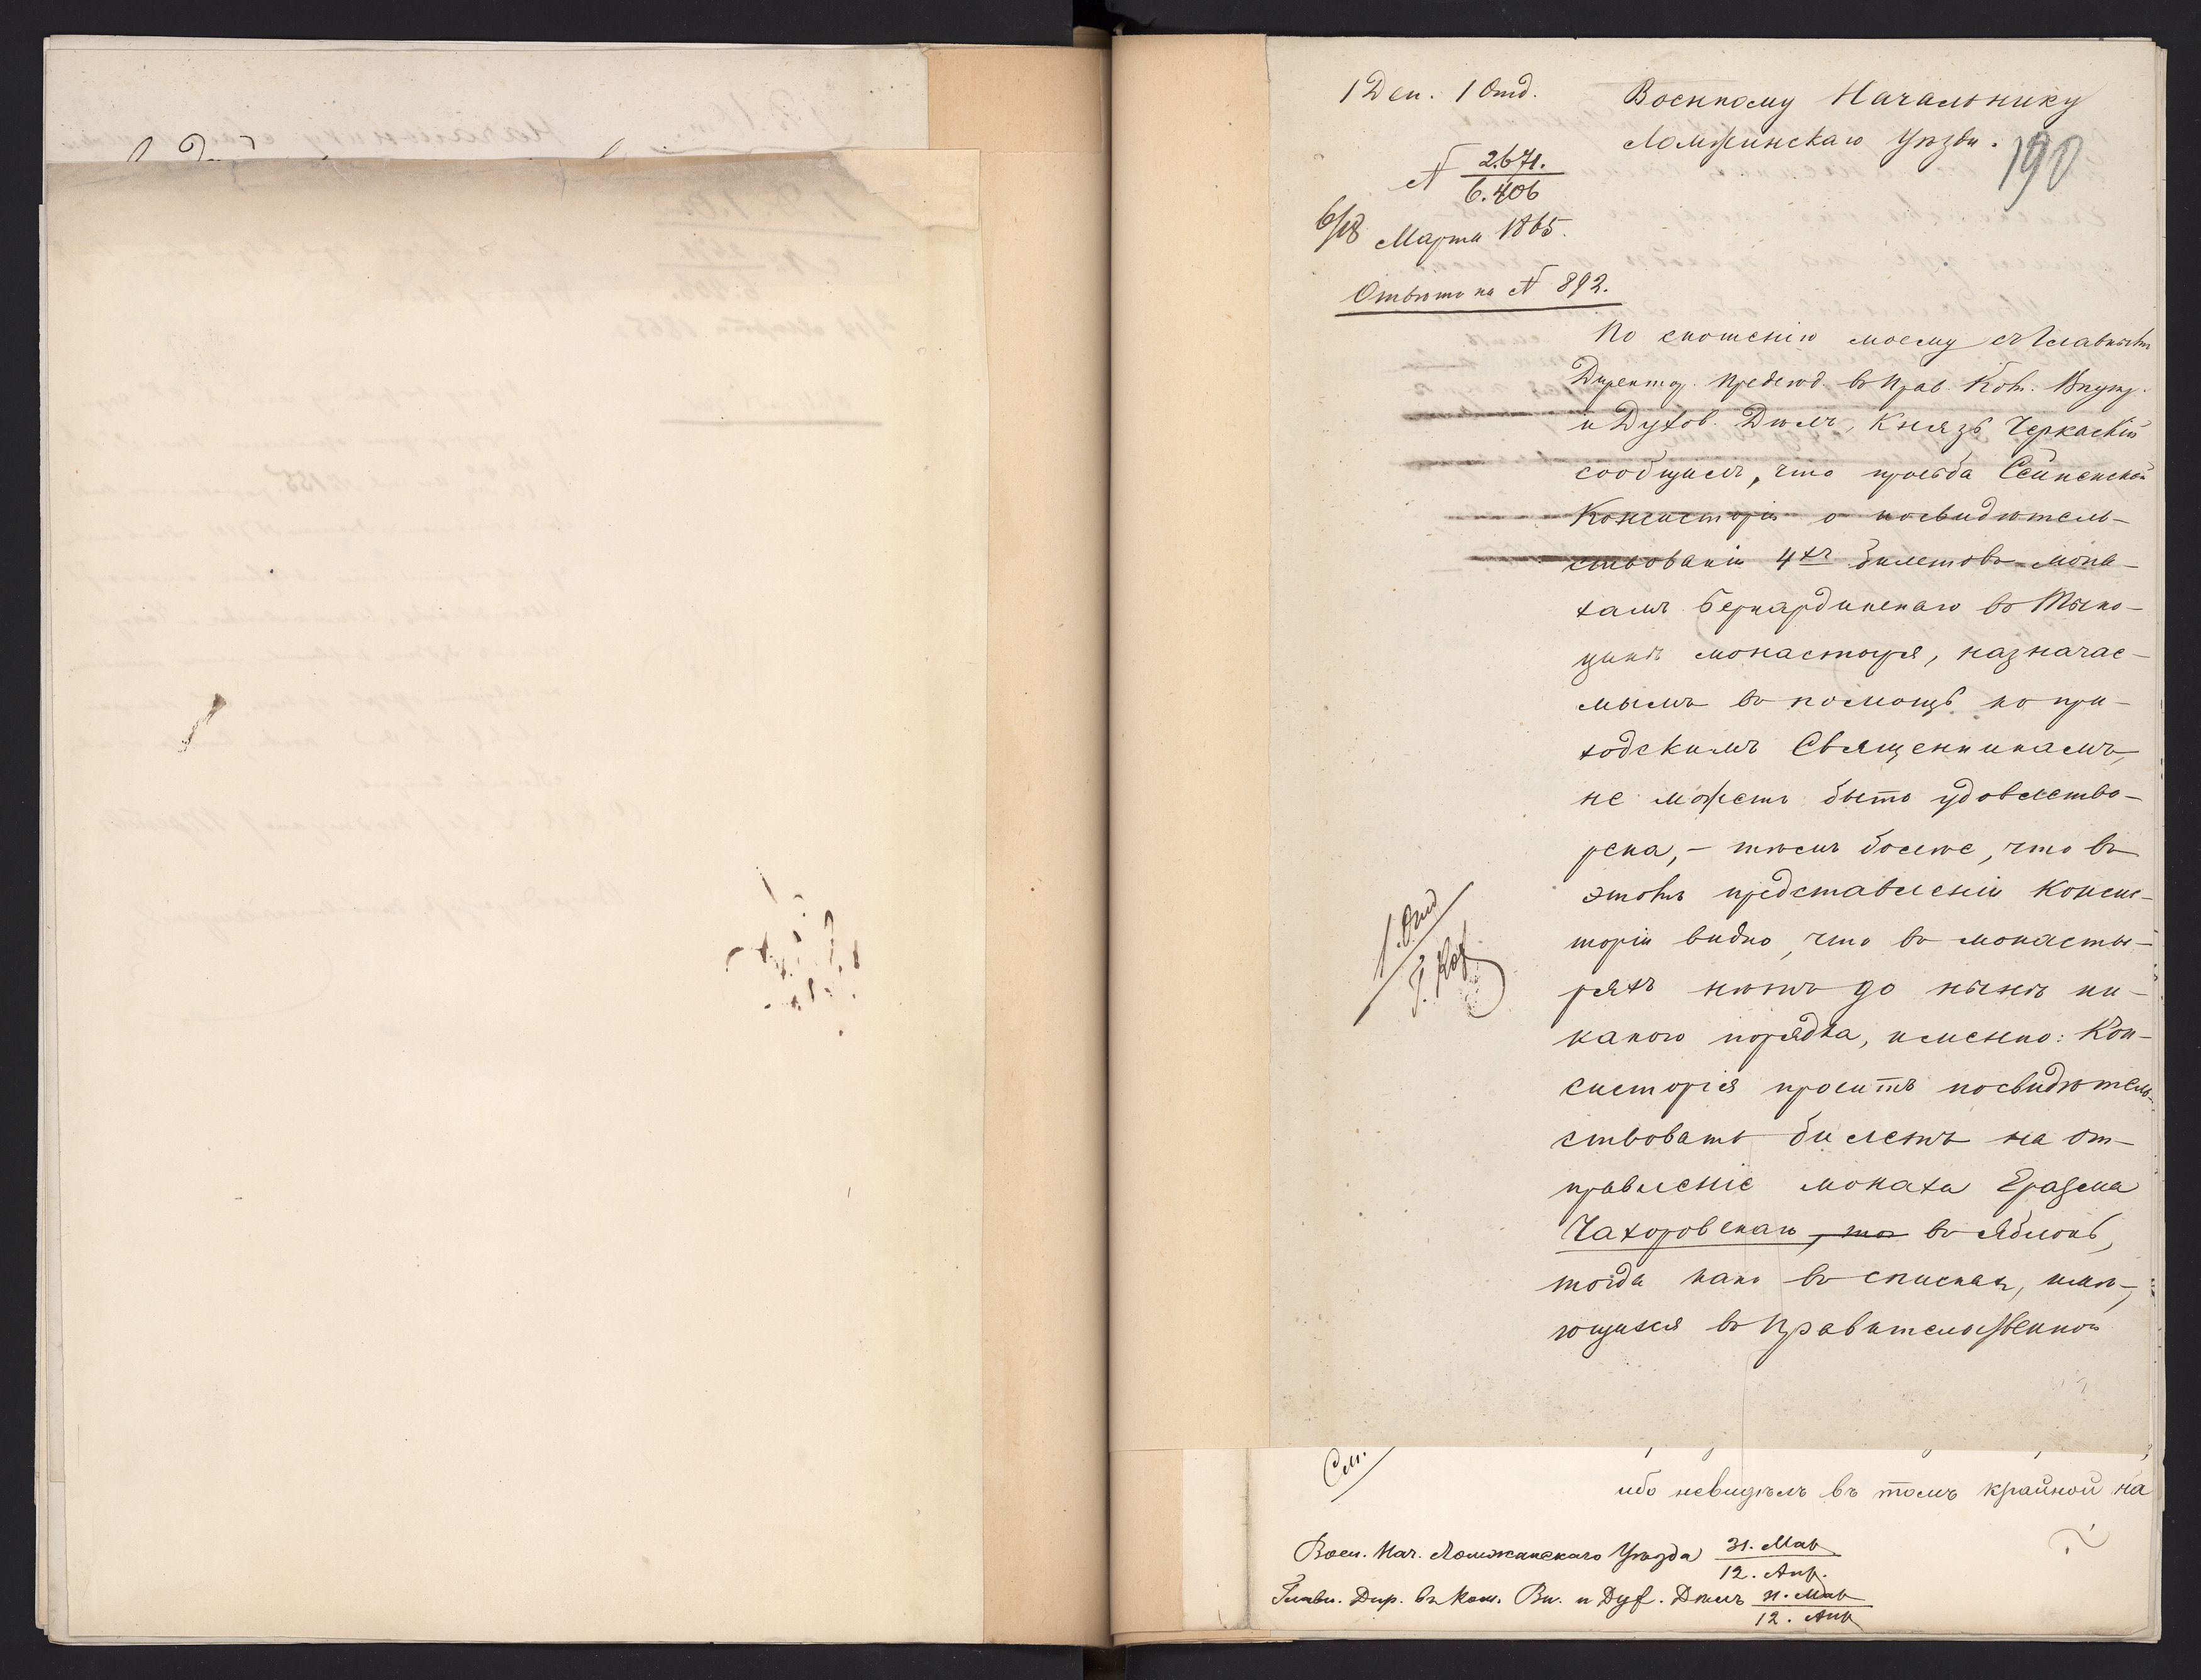 1 Деп. 1 Отд.
Военному Начальнику
Ломжинскаго Уѣзда.
190
№ 2.671.
6.406
6/18 Марта 1865.
Отвѣтъ на № 892.
По сношенію моему съ Главнымъ
Директор. Предсѣд. въ Прав. Ком. Внутр.
и Духов. Дѣлъ, Князь Черкаскій
сообщилъ, что просьба Сейненской
Консисторіи о посвидѣтель-
ствованіи 4хъ билетовъ мона-
хамъ Бернардинскаго въ Тыко-
цинѣ монастыря, назначае-
мымъ въ помощь по при-
ходскимъ Священникамъ,
не можетъ быть удовлетво-
рена, – тѣмъ болѣе, что въ
этомъ представленіи Консис-
торіи видно, что въ монасты-
ряхъ нѣтъ до нынѣ ни-
какого порядка, именно: Кон-
систорія проситъ посвидѣтель-
ствовать билетъ на от-
правленіе монаха Еразма
Чахоровскаго, то въ Яблонь,
тогда какъ въ спискахъ, имѣ-
ющихся въ Правительственной
1. Отд
См.
ибо невидѣлъ въ томъ крайной на
Воен. Нач. Ломжинскаго Уѣзда 31. Мар
12. Апр.
Главн. Дир. въ Ком. Вн. и Дух. Дѣлъ 31. Мар
12. Апр